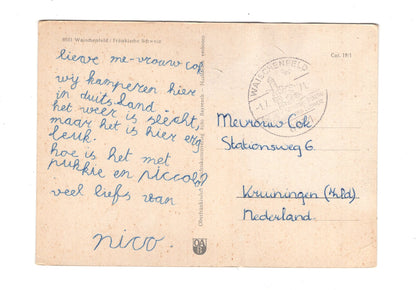 8551 Waischenfeld / Fränkische Schweiz
Cat. 19/1
lieve me-vrouw cok
wy kamperen hier
in duits land
het weer is slecht,
maar het is hier erg
leuk.
hoe is het met
pukkie en piccolo?
veel liefs van
nico.
WAISCHENFELD
Mevrouw Cok
Stationsweg 6
Kruiningen (Zld)
Nederland.